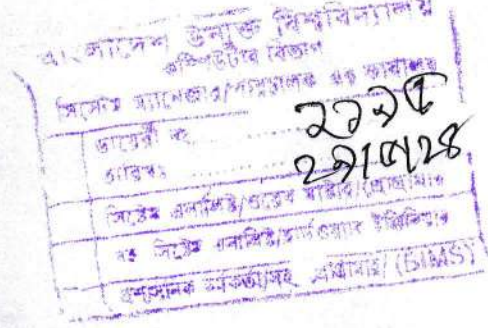 বাংলাদেশ উন্মুক্ত বিশ্ববিদ্যালয়
কম্পিউটার বিভাগ
সিস্টেম ম্যানেজার/পরিচালক এর কার্যালয়
ডায়েরী নং ..........
তারিখঃ ..........
সিস্টেম এনালিস্ট/ওয়েব মাস্টার/প্রোগ্রামার
সহ সিস্টেম এনালিস্ট/হার্ডওয়্যার ইঞ্জিনিয়ার
প্রশাসনিক কর্মকর্তা/সহ প্রোগ্রামার/ (SIMS)